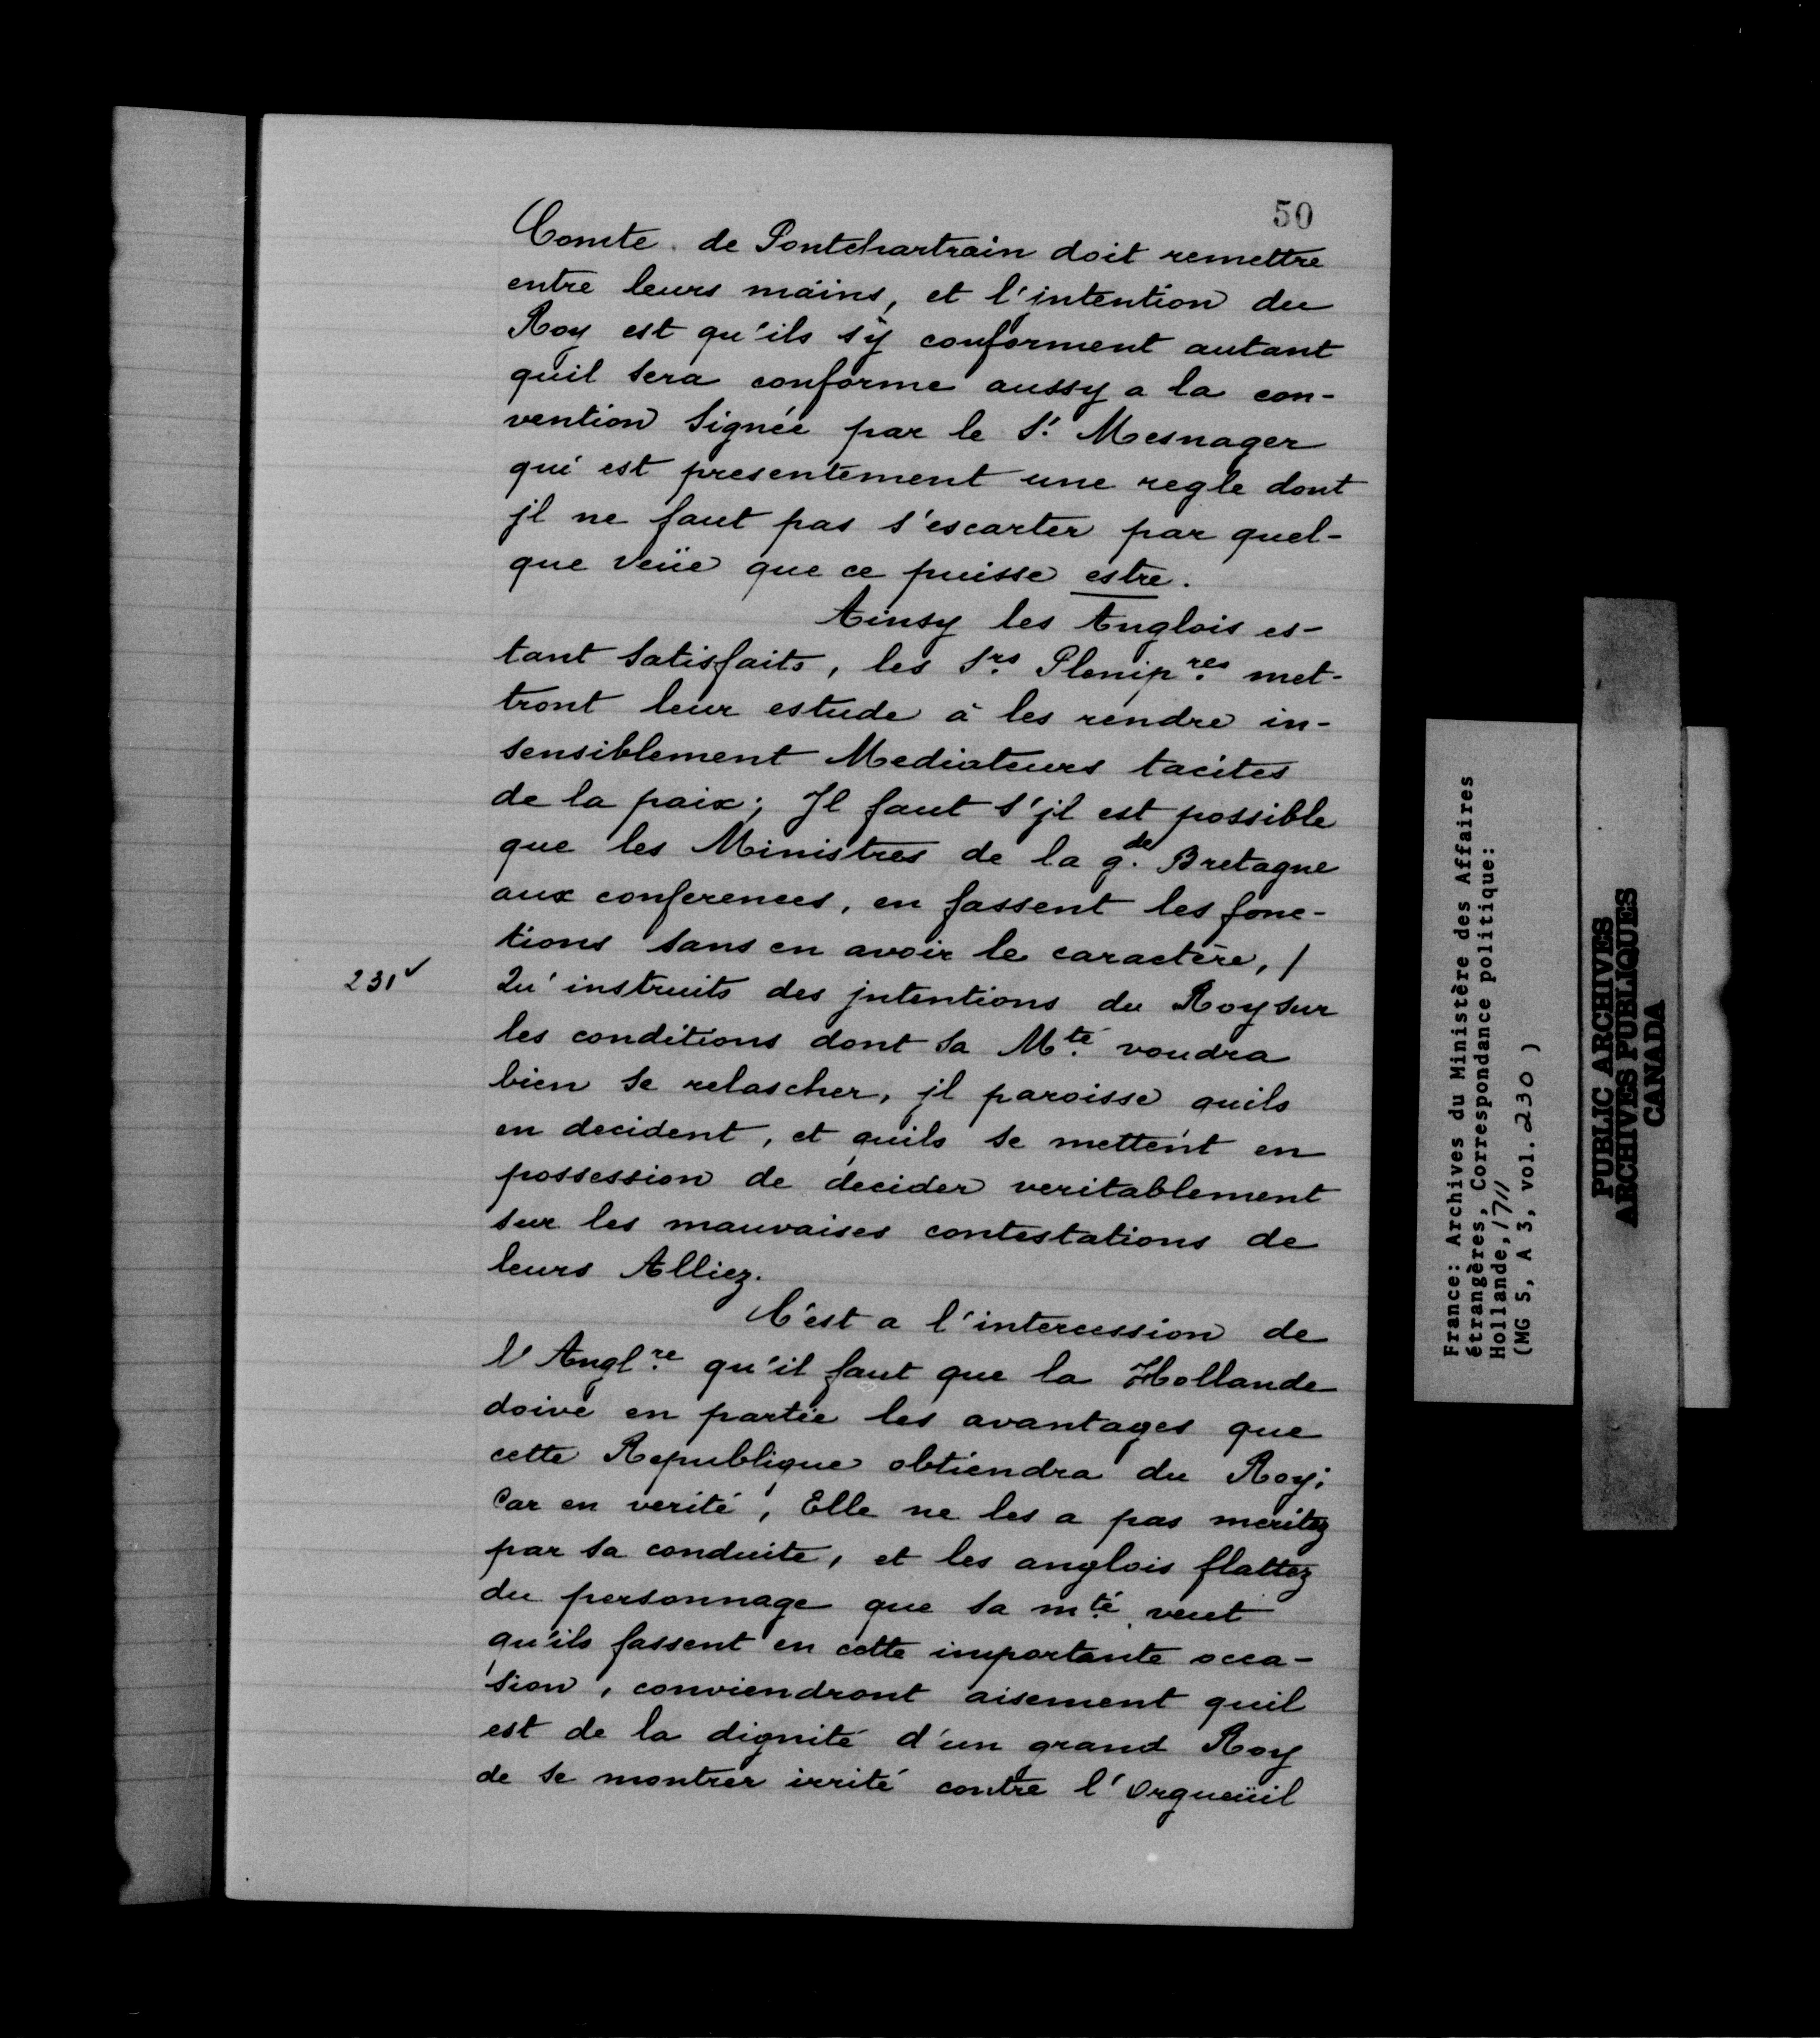 50
Comte de Pontchartrain doit remettre
entre leurs mains, et l'jntention du
Roy est qu'ils s'ÿ conforment autant
quil sera conforme aussy a la con-
vention Signée par le Sr. Mesnager
qui est presentement une regle dont
jl ne faut pas s'escarter par quel-
que veüe que ce puisse estre.
Ainsy les Anglois es-
tant satisfaits, les Srs. Plenipres. met-
tront leur estude à les rendre in-
sensiblement Mediateurs tacites
de la paix; Jl faut s'jl est possible
que les Ministres de la gde. Bretagne
aux conferences, en fassent les fonc-
tions sans en avoir le caractere, /
231v
Qu'instruits des jntentions du Roy sur
les conditions dont sa Mté. voudra
bien se relascher, jl paroisse quils
en decident, et quils se mettent en
possession de decider veritablement
sur les mauvaises contestations de
leurs Alliez.
C'est a l'intercession de
l'Anglre. qu'il faut que la Hollande
doive en partie les avantages que
cette Republique obtiendra du Roy;
Car en verité, Elle ne les a pas meritez
par sa conduite, et les anglois flattez
du personnage que sa mté. veut
qu'ils fassent en cette importante occa-
sion, conviendront aisement quil
est de la dignité d'un grand Roy
de se montrer irrité contre l'Orgueüil
France: Archives du Ministère des Affaires
étrangères, Correspondance politique:
Hollande, 1711
(MG 5, A 3, vol. 230 )
PUBLIC ARCHIVES
ARCHIVES PUBLIQUES
CANADA